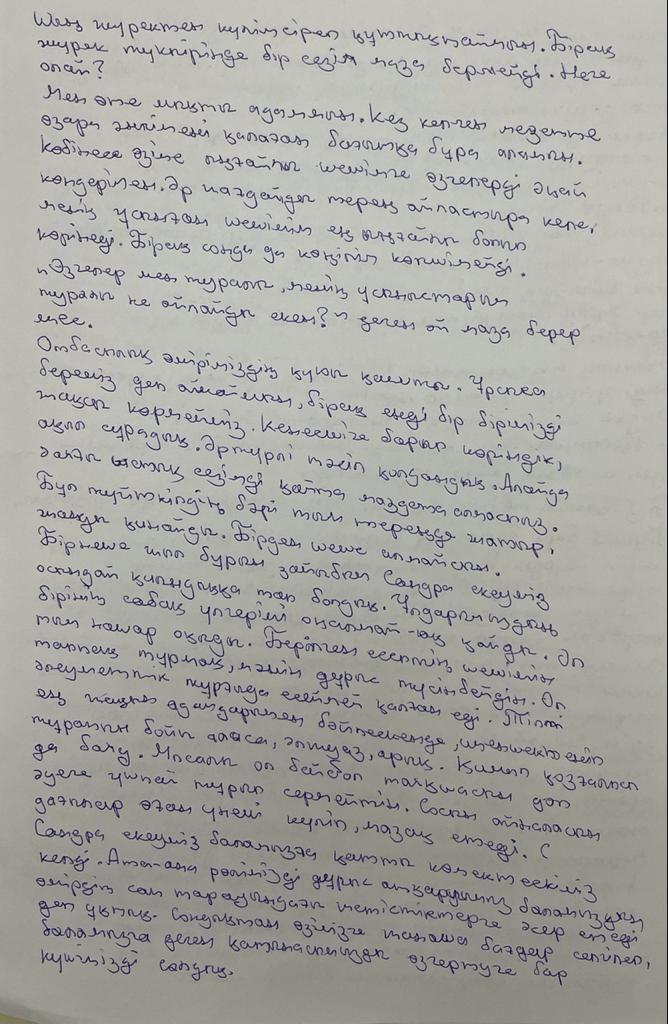 Шын жүректен күлімсіреп құттықтаймын. Бірақ
жүрек түкпірінде бір сезім маза бермейді. Неге
олай?
Мен өте мықты адаммын. Кез келген мезетте
өзара әңгімені қалаған бағытқа бұра аламын.
Көбінесе өзіме ыңғайлы шешімге өзгелерді оңай
көндіремін. Әр жағдайды терең ойластыра келе,
менің ұсынған шешімім ең ыңғайлы болып
көрінеді. Бірақ сонда да көңілім көншімейді.
"Өзгелер мен туралы, менің ұсыныстарым
туралы не ойлайды екен?" деген ой маза берер
емес.
Отбасылық өміріміздің құты қашты. Ұрыса
береміз деп айтпаймын, бірақ енді бір бірімізді
жақсы көрмейміз. Кеңесшіге барып көріндік,
ақыл сұрадық. Әртүрлі тәсіл қолдандық. Алайда
бағы ыстық сезімді қайта маздата алмаспыз.
Бұл түйткілдің бәрі тым тереңде жатыр,
жанды қинайды. Бірден шеше алмайсың.
Бірнеше жыл бұрын зайыбым Сандра екеуміз
осындай қиындыққа тап болдық. Ұлдарымыздың
бірінің сабақ үлгерімі оңалмай-ақ қойды. Ол
тым нашар оқыды. Берілген есептің шешімін
таппақ тұрмақ, мәнін дұрыс түсінбейтін. Ол
әлеуметтік тұрғыда есеймей қалған еді. Тіпті
ең жақын адамдарымен бәйгешенде, іщеншектейтін
тұратын бойы аласа, әлжуаз, арық. Қимыл қозғалысы
да баяу. Мысалы ол бейсбол таяқшасын доп
әуеге ұшпай тұрып сермейтін. Сосын айналасын
дағылар оған үнемі күліп, мазақ етеді. (
Сандра екеуміз баламызға қатты көмектескіміз
келді. Ата-ана рөлімізді дұрыс атқаруымыз баламыздың
өмірдің сан тарауындағы жетістіктерге әсер етеді
деп ұқтық. Сондықтан өзімізге жаңаша бағдар сілтеп,
баламызға деген қатынасымызды өзгертуге бар
күшімізді салдық.